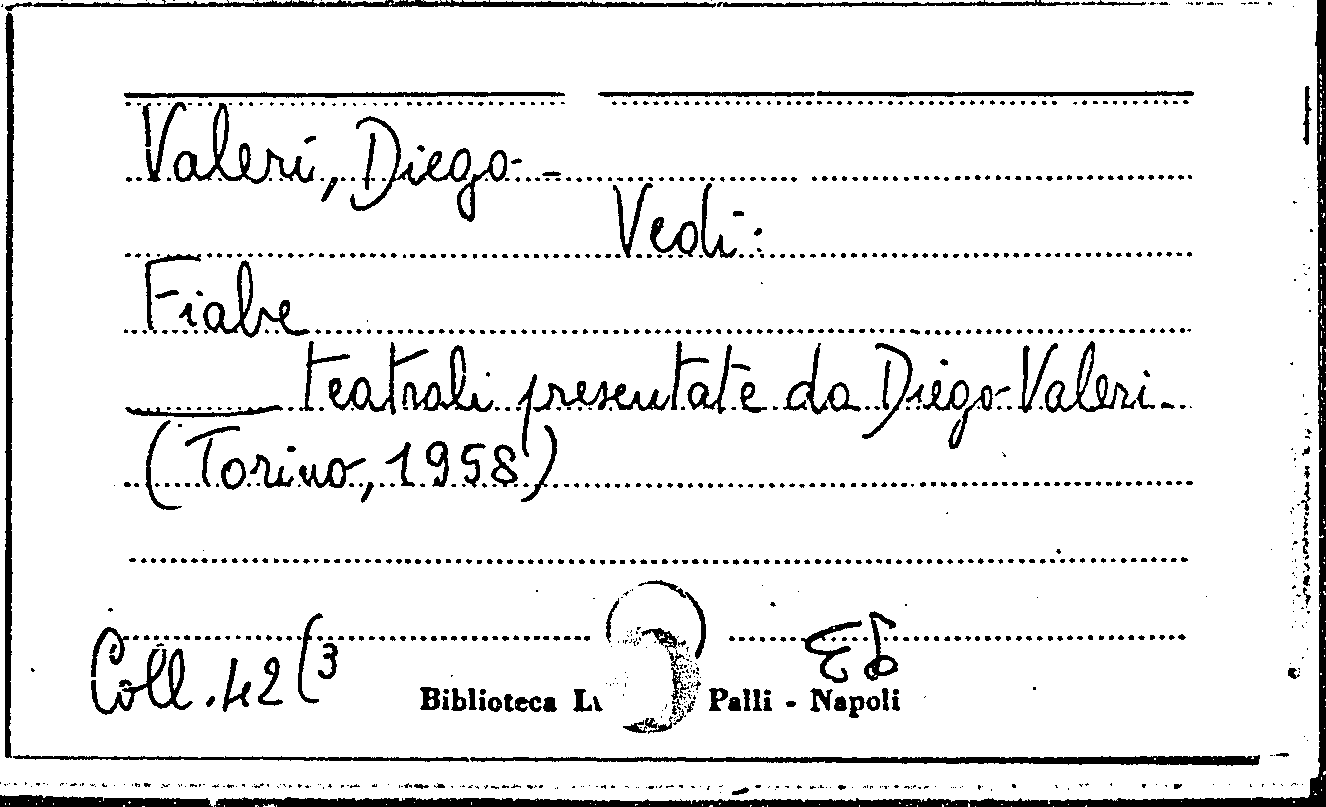 Valeri, Diego -
Vedi:
Fiabe
teatrali presentate da Diego Valeri -
(Torino, 1958)
Coll. 42 (3
Biblioteca Palli - Napoli